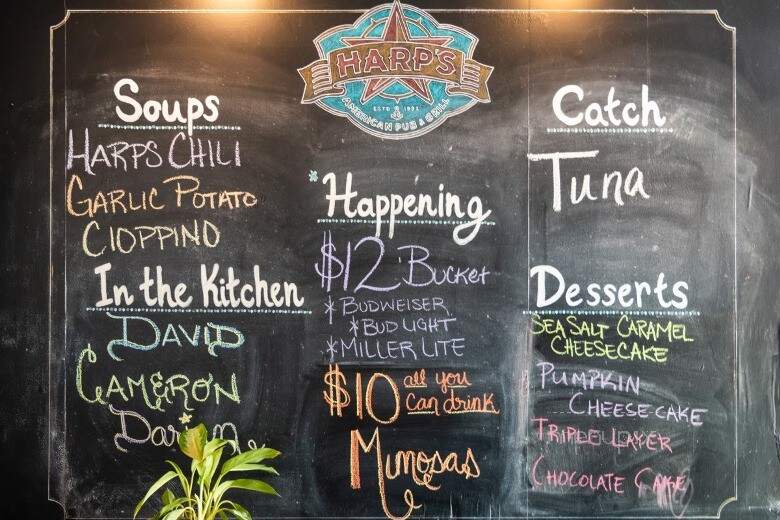 HARP'S
ESTD 1991
AMERICAN PUB & GRILL
Soups
HARPS CHILI
GARLIC POTATO
CIOPPINO
In the Kitchen
DAVID
CAMERON
*Happening
$12 BUCKET
*BUDWEISER
*BUD LIGHT
*MILLER LITE
$10 all you can drink
Mimosas
Catch
Tuna
Desserts
SEA SALT CARAMEL
CHEESECAKE
PUMPKIN
CHEESECAKE
TRIPLE LAYER
CHOCOLATE CAKE